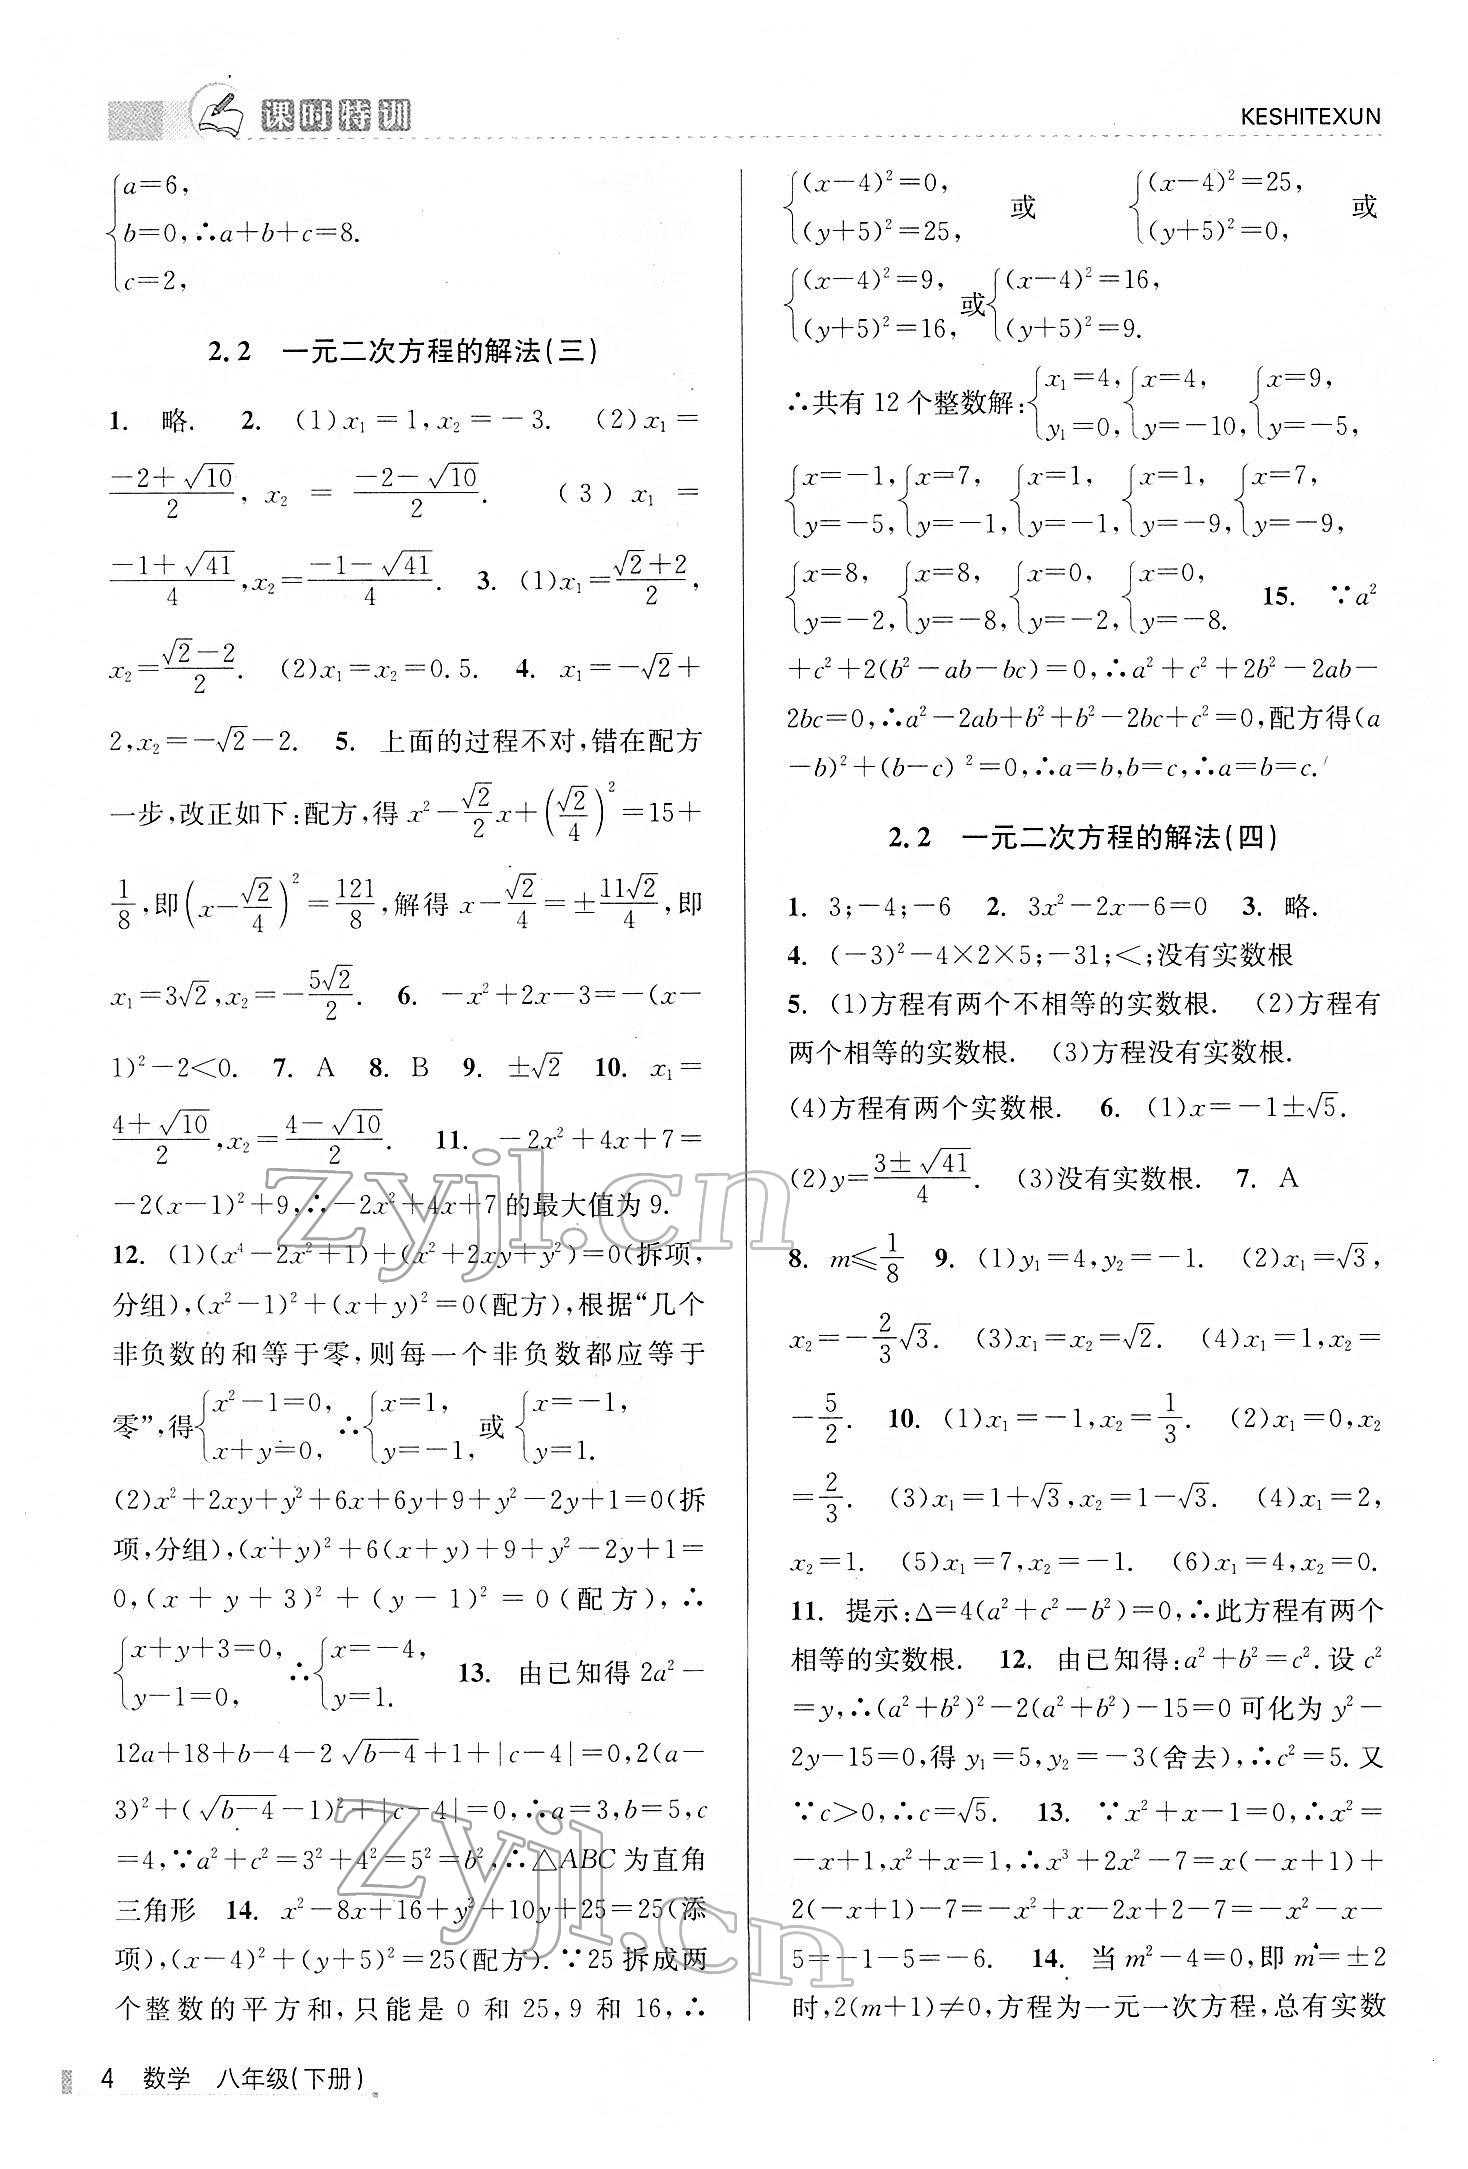 课时特训
KESHITEXUN
{a=6,
b=0,∴a+b+c=8.
c=2,
2.2 一元二次方程的解法(三)
1. 略. 2. (1)x₁=1,x₂=-3. (2)x₁=
(-2+√10)/2, x₂ = (-2-√10)/2. (3) x₁ =
(-1+√41)/4,x₂=(-1-√41)/4. 3. (1)x₁=(√2+2)/2,
x₂=(√2-2)/2. (2)x₁=x₂=0.5. 4. x₁=-√2+
2,x₂=-√2-2. 5. 上面的过程不对,错在配方
一步,改正如下:配方,得 x²-(√2/2)x+(√2/4)²=15+
1/8,即(x-√2/4)²=121/8,解得 x-√2/4=±11√2/4,即
x₁=3√2,x₂=-5√2/2. 6. -x²+2x-3=-(x-
1)²-2<0. 7. A 8. B 9. ±√2 10. x₁=
(4+√10)/2,x₂=(4-√10)/2. 11. -2x²+4x+7=
-2(x-1)²+9,∴-2x²+4x+7的最大值为9.
12. (1)(x⁴-2x²+1)+(x²+2xy+y²)=0(拆项,
分组),(x²-1)²+(x+y)²=0(配方),根据“几个
非负数的和等于零,则每一个非负数都应等于
零”,得{x²-1=0, x+y=0, ∴{x=1, y=-1, 或{x=-1, y=1.
(2)x²+2xy+y²+6x+6y+9+y²-2y+1=0(拆
项,分组),(x+y)²+6(x+y)+9+y²-2y+1=
0,(x+y+3)²+(y-1)²=0(配方),∴
{x+y+3=0, y-1=0, ∴{x=-4, y=1. 13. 由已知得 2a²-
12a+18+b-4-2√(b-4)+1+|c-4|=0,2(a-
3)²+(√(b-4)-1)²+|c-4|=0,∴a=3,b=5,c
=4,∵a²+c²=3²+4²=5²=b²,∴△ABC为直角
三角形 14. x²-8x+16+y²+10y+25=25(添
项),(x-4)²+(y+5)²=25(配方).∵25拆成两
个整数的平方和,只能是 0 和 25,9 和 16,∴
{(x-4)²=0, (y+5)²=25, 或 {(x-4)²=25, (y+5)²=0, 或
{(x-4)²=9, (y+5)²=16, 或{(x-4)²=16, (y+5)²=9.
∴共有 12 个整数解:{x₁=4, y₁=0, {x=4, y=-10, {x=9, y=-5,
{x=-1, y=-5, {x=7, y=-1, {x=1, y=-1, {x=1, y=-9, {x=7, y=-9,
{x=8, y=-2, {x=8, y=-8, {x=0, y=-2, {x=0, y=-8. 15. ∵a²
+c²+2(b²-ab-bc)=0,∴a²+c²+2b²-2ab-
2bc=0,∴a²-2ab+b²+b²-2bc+c²=0,配方得(a
-b)²+(b-c)²=0,∴a=b,b=c,∴a=b=c.
2.2 一元二次方程的解法(四)
1. 3;-4;-6 2. 3x²-2x-6=0 3. 略.
4. (-3)²-4×2×5;-31;<;没有实数根
5. (1)方程有两个不相等的实数根. (2)方程有
两个相等的实数根. (3)方程没有实数根.
(4)方程有两个实数根. 6. (1)x=-1±√5.
(2)y=(3±√41)/4. (3)没有实数根. 7. A
8. m≤1/8 9. (1)y₁=4,y₂=-1. (2)x₁=√3,
x₂=-(2/3)√3. (3)x₁=x₂=√2. (4)x₁=1,x₂=
-5/2. 10. (1)x₁=-1,x₂=1/3. (2)x₁=0,x₂
=2/3. (3)x₁=1+√3,x₂=1-√3. (4)x₁=2,
x₂=1. (5)x₁=7,x₂=-1. (6)x₁=4,x₂=0.
11. 提示:Δ=4(a²+c²-b²)=0,∴此方程有两个
相等的实数根. 12. 由已知得:a²+b²=c².设 c²
=y,∴(a²+b²)²-2(a²+b²)-15=0 可化为 y²-
2y-15=0,得 y₁=5,y₂=-3(舍去),∴c²=5.又
∵c>0,∴c=√5. 13. ∵x²+x-1=0,∴x²=
-x+1,x²+x=1,∴x³+2x²-7=x(-x+1)+
2(-x+1)-7=-x²+x-2x+2-7=-x²-x-
5=-1-5=-6. 14. 当 m²-4=0,即 m=±2
时,2(m+1)≠0,方程为一元一次方程,总有实数
4 数学 八年级(下册)
zyjl.cn
zyjl.cn